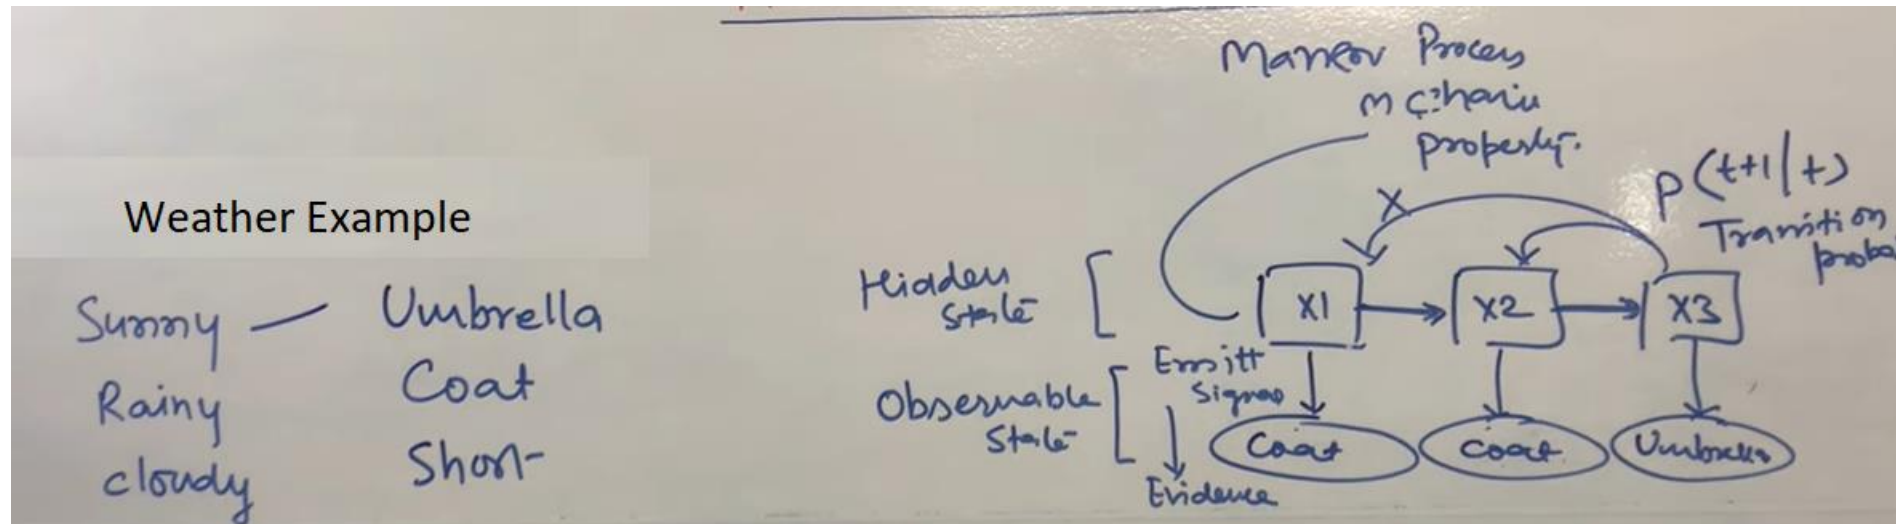 Weather Example
Sunny — Umbrella
Rainy Coat
cloudy Short
Markov Process
m chain
property.
P(t+1/t)
Transition
proba
X
Hidden
State
X1
X2
X3
Observable
State
Emitt
Signas
Evidence
Coat
Coat
Umbrella